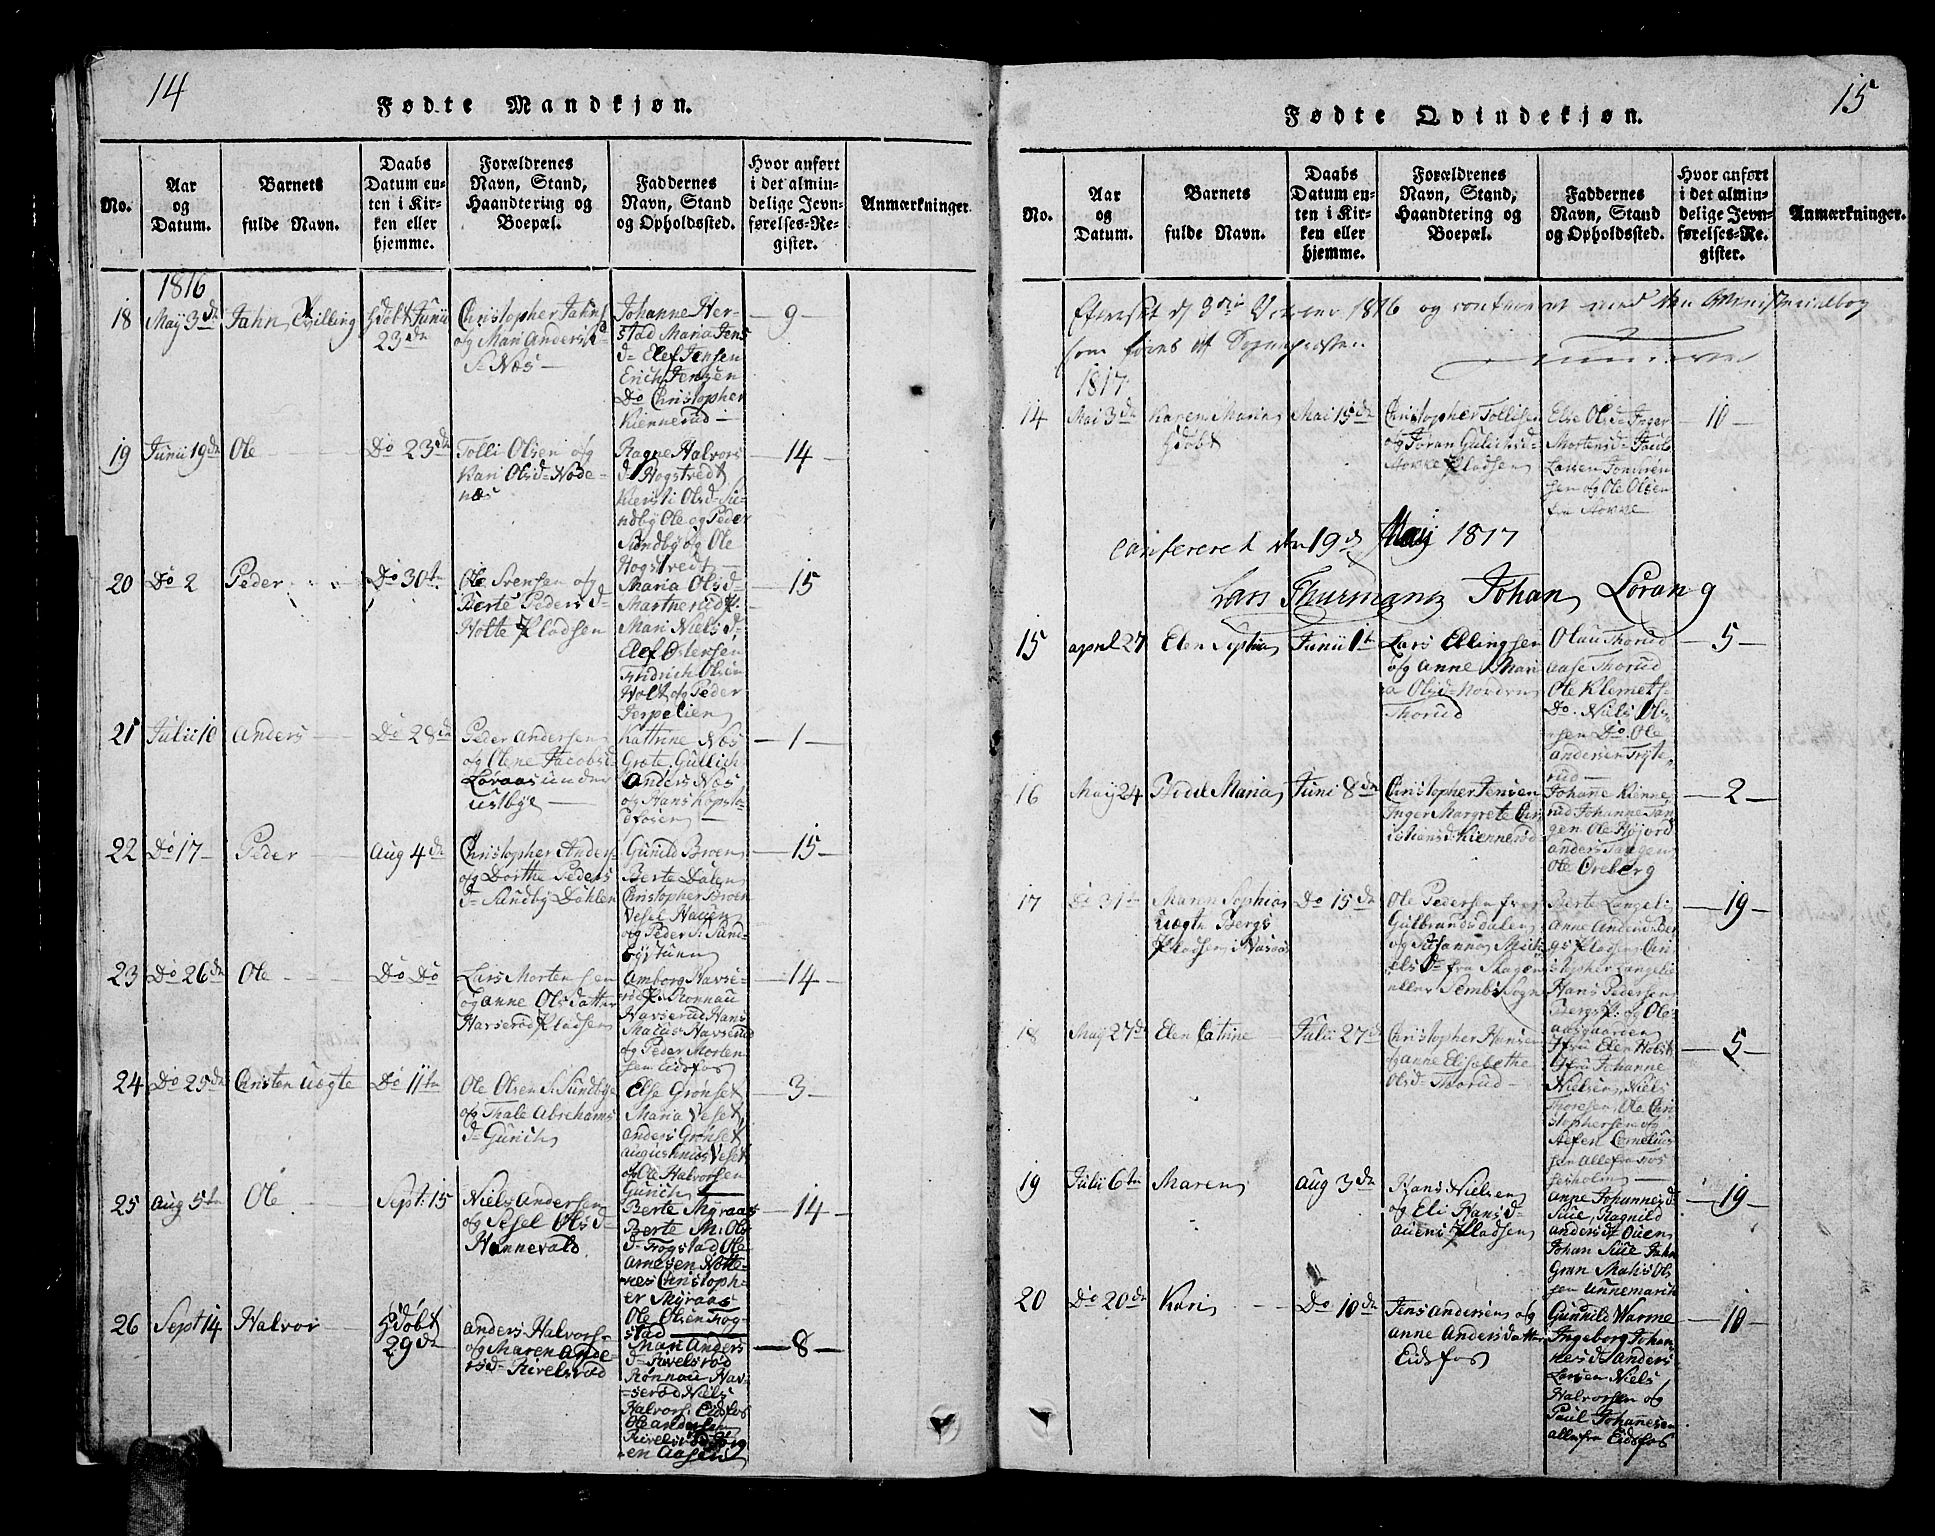 14
Fødte Mandkjøn.
No.
Aar
og
Datum.
Barnets
fulde Navn.
Daabs
Datum en-
ten i Kir-
ken eller
hjemme.
Forældrenes
Navn, Stand,
Haandtering og
Boepæl.
Faddernes
Navn, Stand
og Opholdssted.
Hvor anført
i det almin-
delige Jevn-
førelses-Re-
gister.
Anmærkninger
1816
18
May 3de
Jahn Tvilling
hdøbt Junii
23de
Christopher Jahns
og Mari Anders
d. Næs
Johanne Her-
stad Maria Jens
d. Elef Jensen
Erich Jensen
Do Christopher
Kiennerud
9
19
Junii 19de
Ole
Do 23de
Tolli Olsen og
Kari Olsd. Nøde-
næs
Ragne Halvors
d. Hogstvedt
Kiersti Olsd. Su-
ndby Ole og Peder
Sundby og Ole
Hogstvedt
14
20
Do 2
Peder
Do 30te
Ole Svensen og
Berte Peders d.
Holte Pladsen
Maria Olsd.
Martnerud P.
Mari Niels d.
Elef Osersen
Fridrich Olsen
Holt og Peder
Jerpelien
15
21
Julii 10
Anders
Do 28de
Peder Andersen
og Olene Jacobsd
Løvaas under
Ustbye
Kattrine Næs
Grete Gullich
Anders Næs
og Hans Kopsto
dfosen
1
22
Do 17
Peder
Aug 4de
Christopher Anders
og Dorthe Peders
d. Sundby Dahlen
Gunild Broen
Berte Dalen
Christopher Broen
Vesel Hauen
og Peder S. Sund-
bystuen
15
23
Do 26de
Ole
Do Do
Lars Morten sen
og Anne Olsdatter
Havserød Pladsen
Amborg Havse-
rød P. Ronnau
Havserud Hans
Matias Havserud
og Peder Morten
sen Eidsfos
14
24
Do 25de
Christen Uægte
Do 11te
Ole Olsen S. Sundbye
og Thale Abrehams
d. Gurich
Else Grønset
Maria Veset
Anders Grønset
Augustinus Veset
og Ole Halvorsen
Gurich
3
25
Aug 5te
Ole
Sept. 15
Niels Andersen
og Sesel Olsd.
Hannevald
Berte Myraas
Berte M. Ols
d. Frogstad Ole
Arnesen Notte-
nes Christoph-
er Myraas
Ole Olsen Frog-
stad
14
26
Sept 14
Halvor
hdøbt
29de
Anders Halvors-
og Maren Ande-
rsd. Rivelsrød
Mari Anders
d. Rivelsrød
Rønnau Hav-
serød Niels
Halvors. Eidsfos
Ole Andersen
Rivelsrød og
en Aasen
8
15
Fødte Qvindekjøn.
No.
Aar
og
Datum.
Barnets
fulde Navn.
Daabs
Datum en-
ten i Kir-
ken eller
hjemme.
Forældrenes
Navn, Stand,
Haandtering og
Boepæl.
Faddernes
Navn, Stand
og Opholdssted.
Hvor anført
i det almin-
delige Jevn-
førelses-Re-
gister.
Anmærkninger.
Efterset d 9de 1816 og confereret med den Ministerialbog
som føres af Sognepræsten
1817
14
Mai 3de
Karen Maria
hdøbt
Mai 15de
Christopher Tollefsen
og Jøran Gulichsd
Hovke Pladsen
Else Olsd Inger
Mortensd
Larsen
sen og Ole Olsen
fra Hovke
10
Confereret den 19d Maij 1817
Lars Thurmann Johan Lorang
15
April 27
Elen Sophia
Junii 1te
Lars Ellingsen
og Anne Mari
a Olsd. Nordre
Thorud
Olau Thorud
Aase Thorud
Ole Klemets-
Do. Niels Ols-
sen Do. Ole
Andersen Tryte-
rud
5
16
May 24
Bodel Maria
Juni 8de
Christopher Jensen
Inger Margrete Chr
istiansd. Kiennerud
Johane Kienne
rud Johanne Tan
gen Ole Højord
Anders Tangen
Ole Oreberg
2
17
Do 31te
Marin Sophia
Uægte Bergs
Pladsen i Vasaas
Do 15de
Ole Pedersen fra
Gulbrandsdalen
og Susanna Mick
elsd. fra Skagen
eller Sembs Sogn
Berte Langeli
Anne Andersd. Ber
gs Pladsen Chri
stopher Langelie
Hans Pedersen
Bergs P. og Ole
Aasgaarden
19
18
May 27de
Elen Catrine
Julii 27de
Christopher Hansen
og Anne Elisabethe
Olsd. Thorud
Jfru Elen Holst
Jfru Johanne
Nielsen, Niels
Thoresen, Ole Chri
stophersen og
Stefen Cornelius
sen alle fra Fos
sesholm
5
19
Julii 6te
Maren
Aug 3de
Hans Nielsen
og Eli Hans d.
Auens Pladsen
Anne Johannesd
Sue, Ragnild
Andersd. Ouen
Johan Sue Jahn
Gran Matis Ol
sen Unnemarich
19
20
Do 20de
Kari
Do 10de
Jens Andersen og
Anne Andersdatter
Eidsfos
Gunnild Warme
Ingeborg Johan
nesd. Anders
Larsen Niels
Halvorsen og
Paul Johannesen
alle fra Eidsfos
10